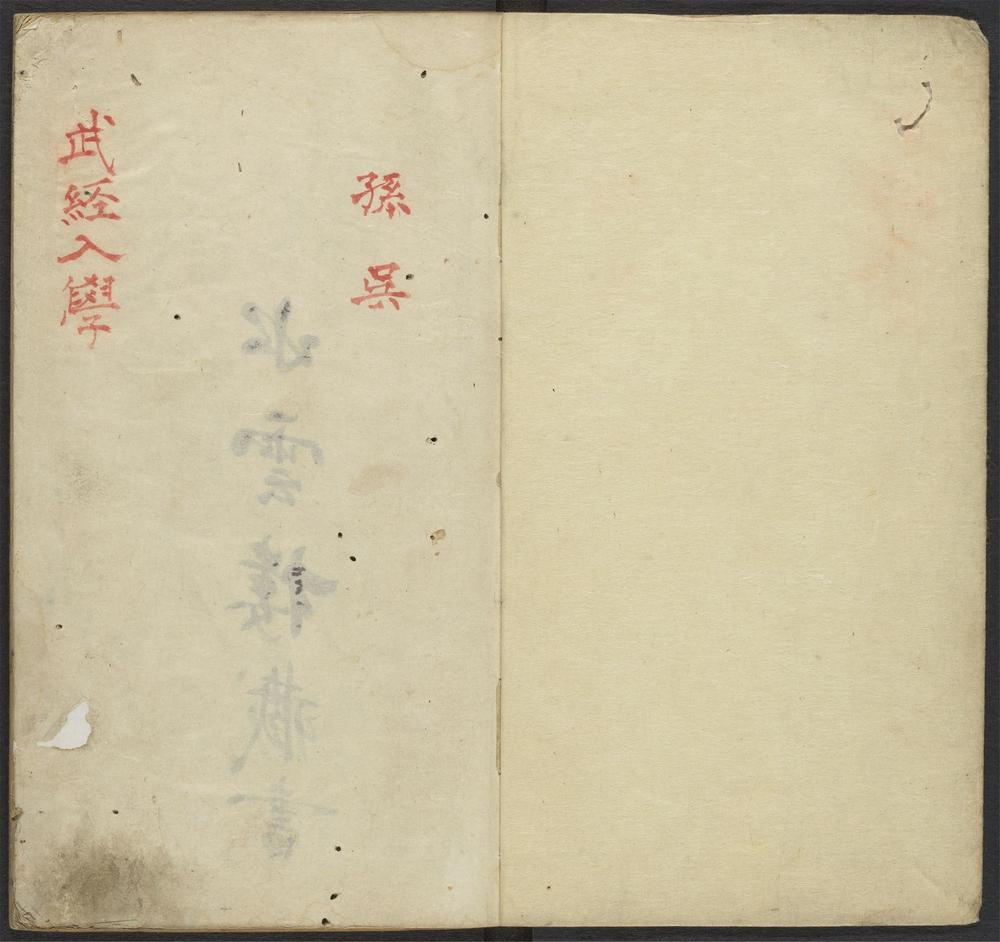 孫呉
水雲樓藏書
武経入學